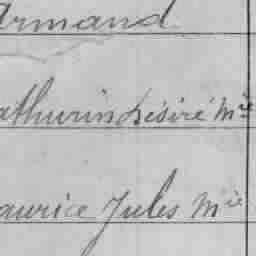 Armand
athurin Désiré Mie
aurice Jules Mie